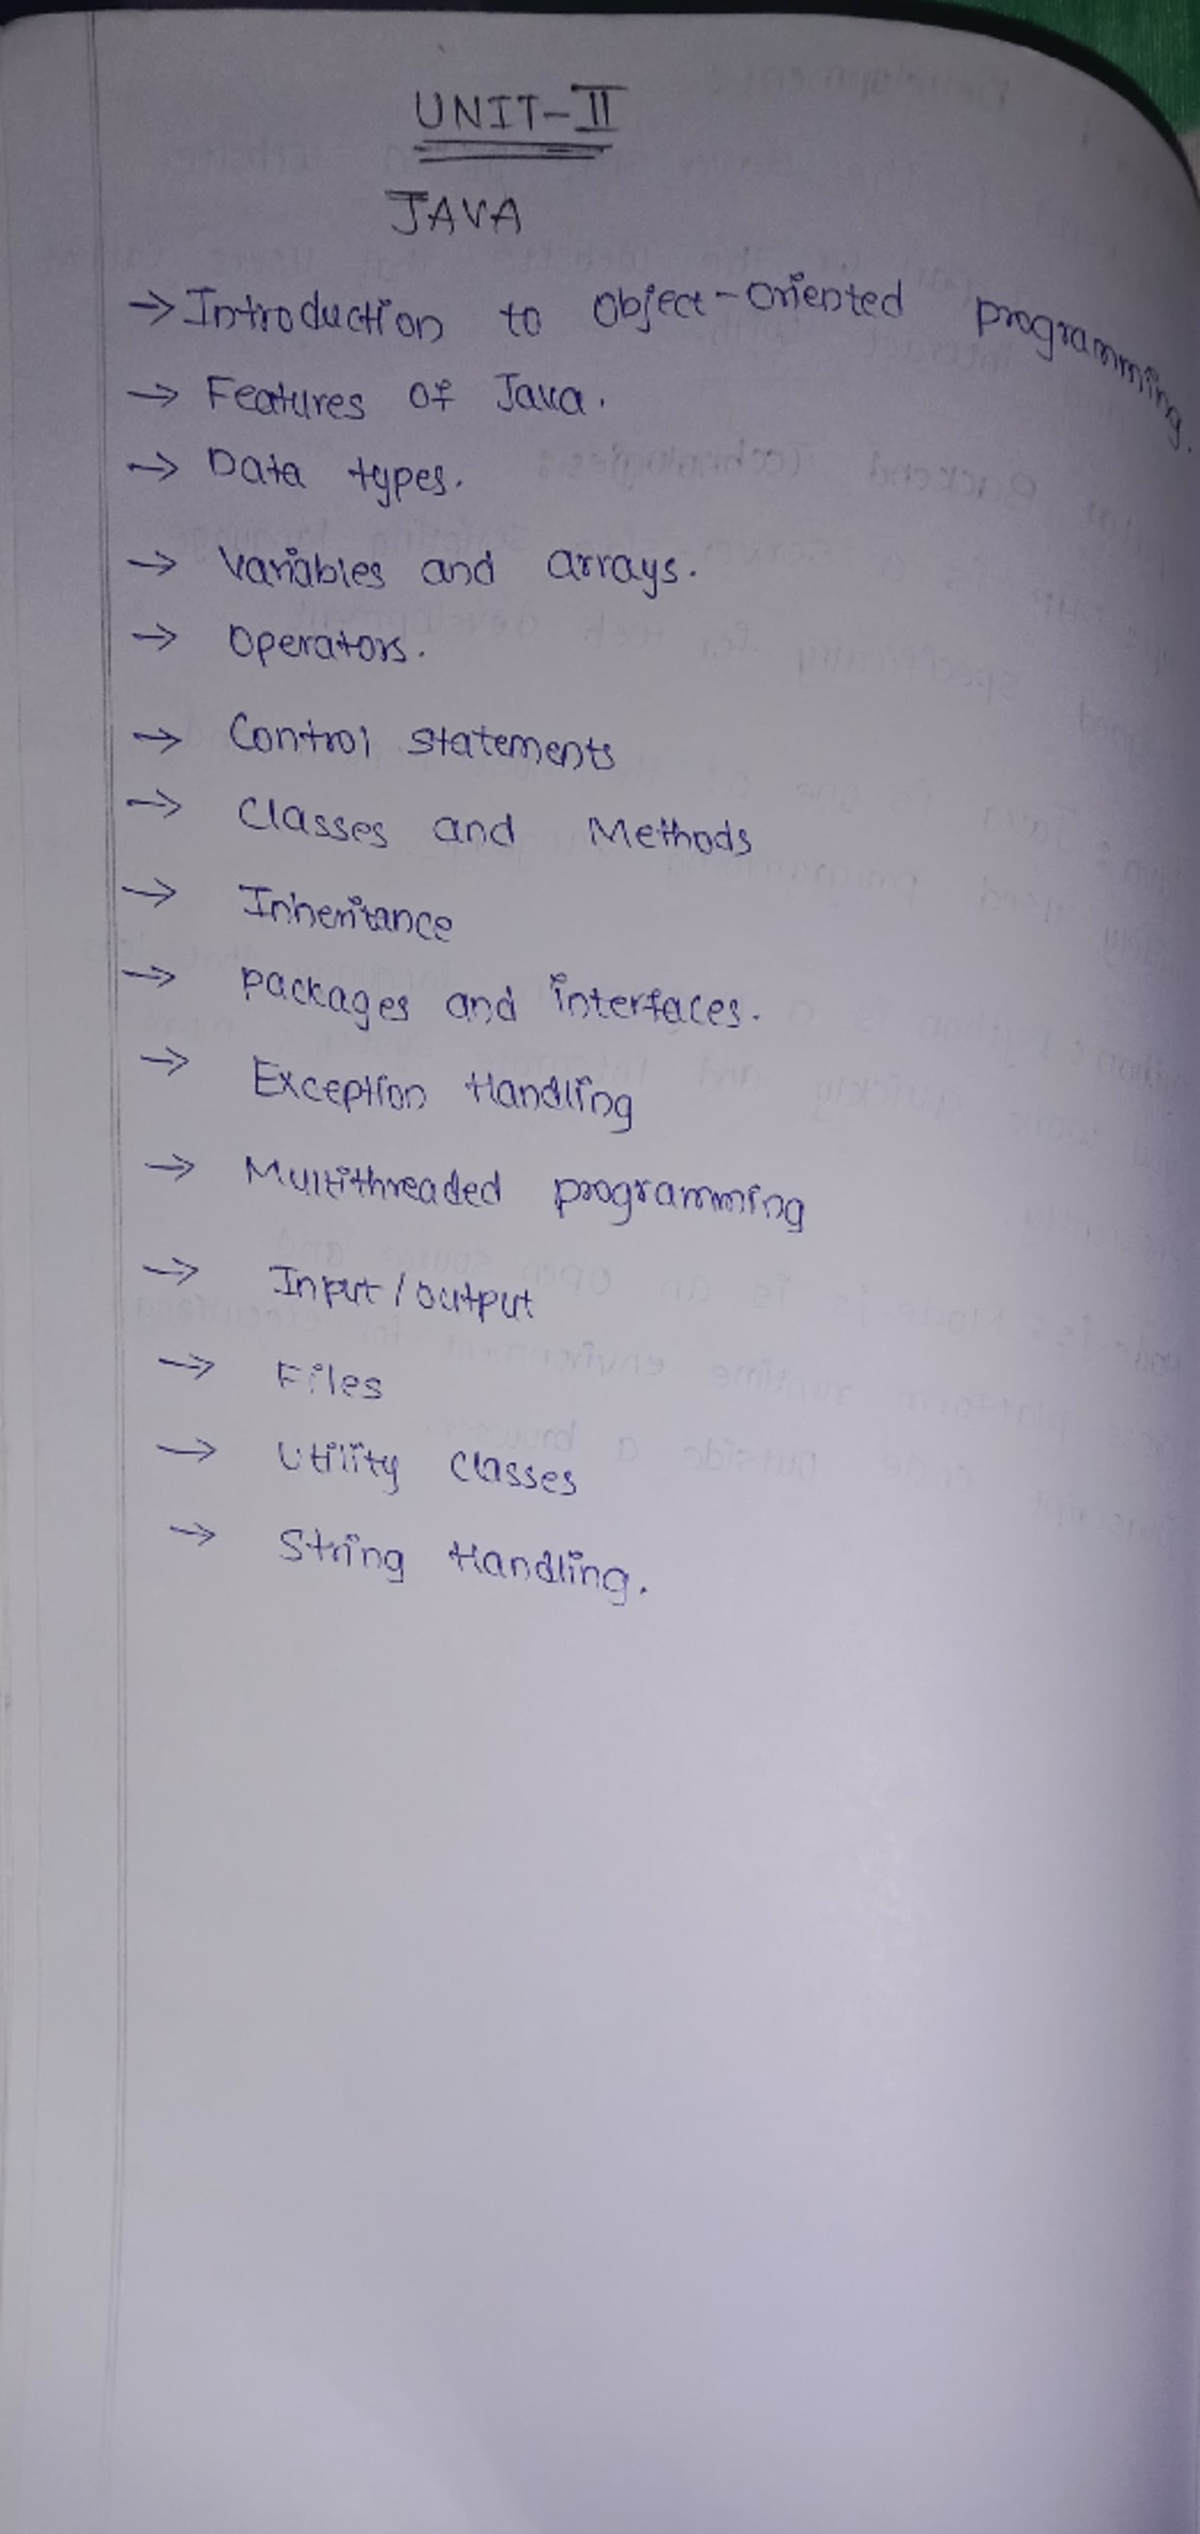 UNIT-II
JAVA
→ Introduction to Object-Oriented programming.
→ Features of Java.
→ Data types.
→ Variables and arrays.
→ Operators.
→ Control statements
→ Classes and Methods
→ Inheritance
→ packages and interfaces.
→ Exception Handling
→ Multithreaded programming
→ Input/output
→ Files
→ Utility Classes
→ String Handling.